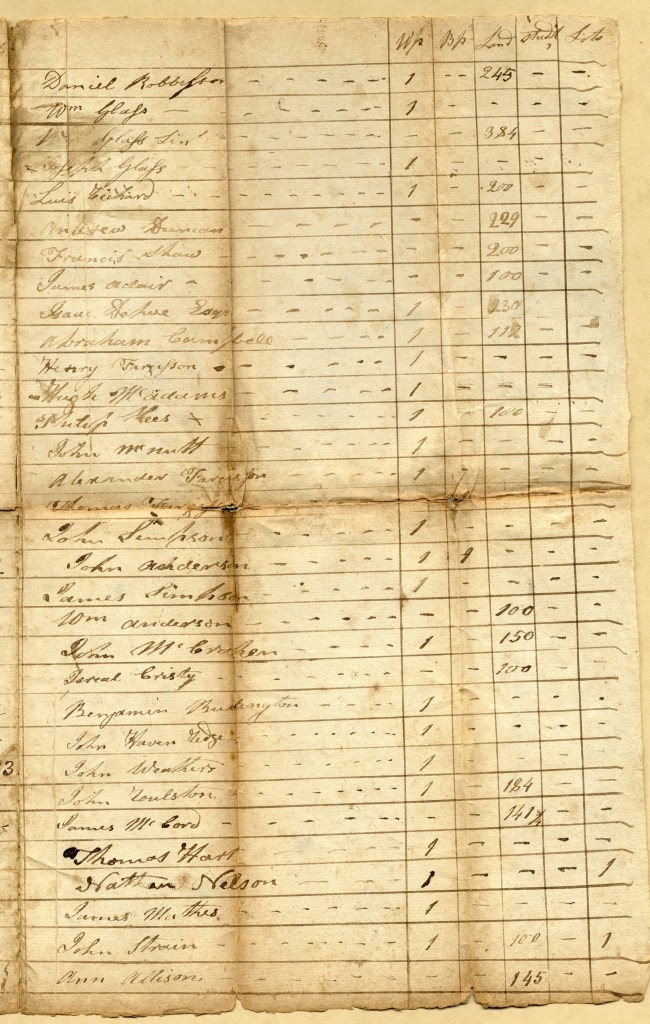 Wp Bp Land Studs Lots
Daniel Robbisson - - - - - 1 - - 245 - -
Wm Glass - - - - - 1 - - - -
Wm Glass Sinr - - - - 384 - -
Joseph Glass 1 - - - -
Luis 1 - 200 - -
Andrew Duncan - - 229 - -
Francis Shaw - - - - 200 - -
James Adair - - - - 100 - -
Isaac Esqr 1 - 230 - -
Abraham Campbell 1 - 112 - -
Henry Fargisson 1 - - - -
Hugh McAdams 1 - - - -
Philip Kees 1 - 100 - -
John McNutt 1 - - - -
Alexander Fargison 1 - - - -
Thomas
John Simpson 1 - - - -
John Anderson 1 1 - - -
James Simpson 1 - - - -
Wm Anderson - - 100 - -
John McCrahen 1 - 150 - -
Isreal Cristy - - 100 - -
Benjamin Budington 1 - - - -
John Haven Hedge 1 - - - -
3. John Weathers 1 - - - -
John 1 - 184 - -
James McCord - - 141½ - -
Thomas Hart 1 - - - -
Nathan Nelson 1 - - - 1
James Mathes 1 - - - -
John Strain - 1 - 100 - 1
Ann Allison - - 145 - -